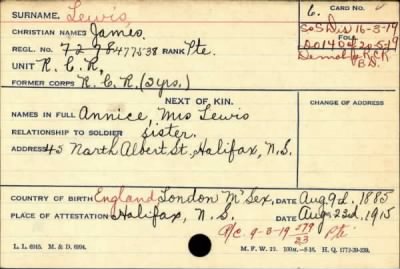 SURNAME. Lewis, CARD NO.
CHRISTIAN NAMES James. 6.
REGL. NO. 7278 477538 RANK Pte. SoS Dis 16-3-19
FOLL.
UNIT R.C.R. DO 140 of 20-5-19
FORMER CORPS R.C.R. (3 yrs.) Demob RCR B.D.
NEXT OF KIN. CHANGE OF ADDRESS
NAMES IN FULL Annice, Mrs Lewis
RELATIONSHIP TO SOLDIER sister.
ADDRESS 45 North Albert St, Halifax, N.S.
COUNTRY OF BIRTH England London M'Sex, DATE Aug 9d. 1885
PLACE OF ATTESTATION Halifax, N.S. DATE Aug 23d. 1915
R/C. 9-3-19 579/23 Pte
L. L. 6915. M. & D. 6994. M. F. W. 22. H. Q. 1772-39-339.